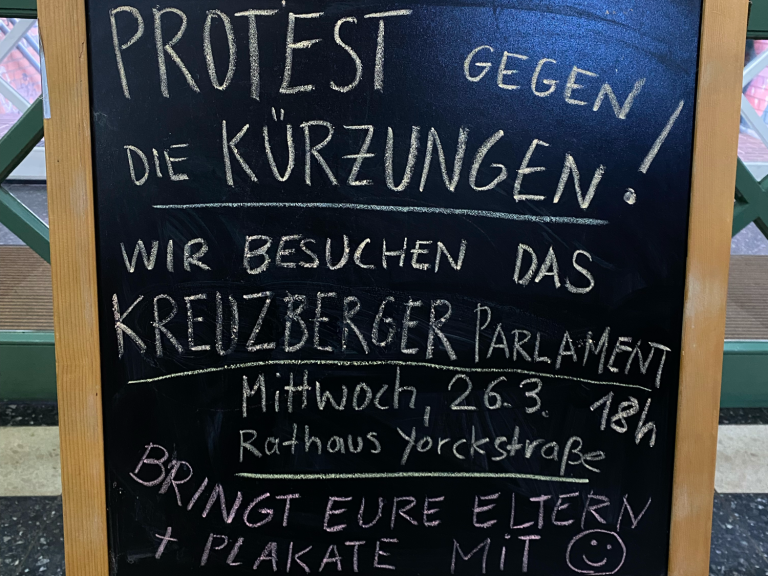 PROTEST GEGEN
DIE KÜRZUNGEN!
WIR BESUCHEN DAS
KREUZBERGER PARLAMENT
Mittwoch, 26.3. 18h
Rathaus Yorckstraße
BRINGT EURE ELTERN
+ PLAKATE MIT ☺